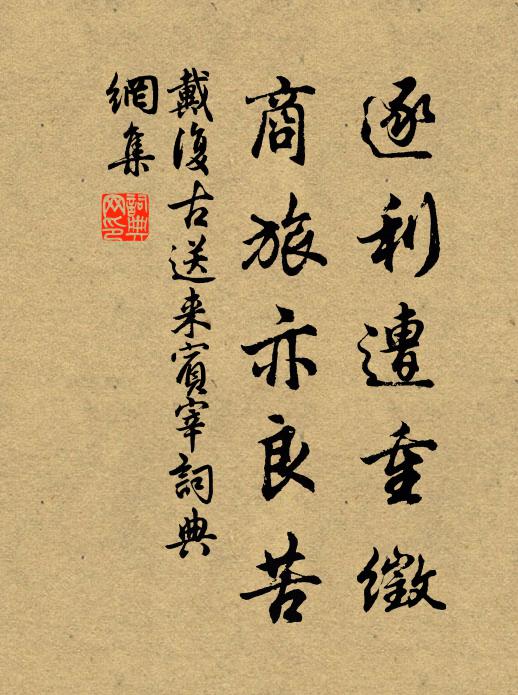 逐利遭重徵
商旅亦良苦
戴復古送来賓宰詞典
網集
詞典
网印